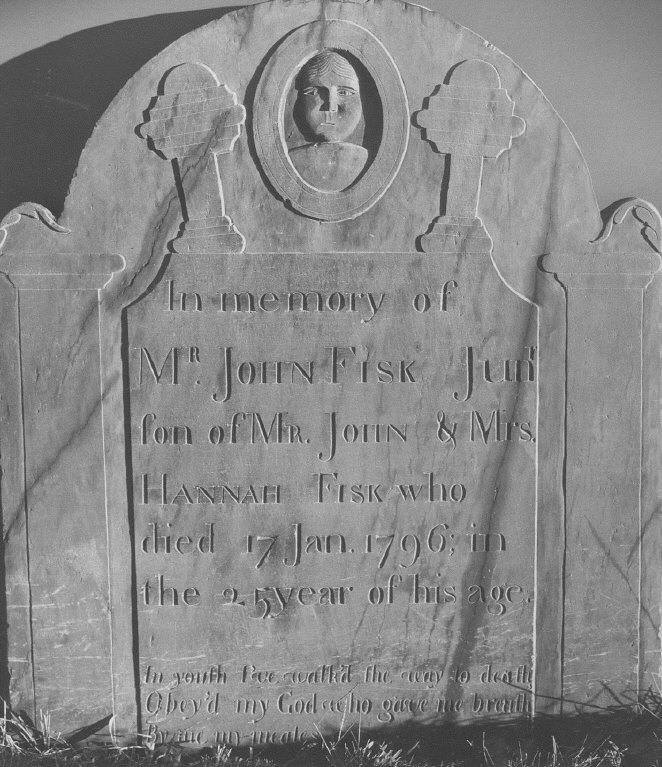 In memory of
Mr. John Fisk Junr
ſon of Mr. John & Mrs.
Hannah Fisk who
died 17 Jan. 1796; in
the 25 year of his age.
In youth I've walk'd the way to death
Obey'd my God who gave me breath
By me my mate